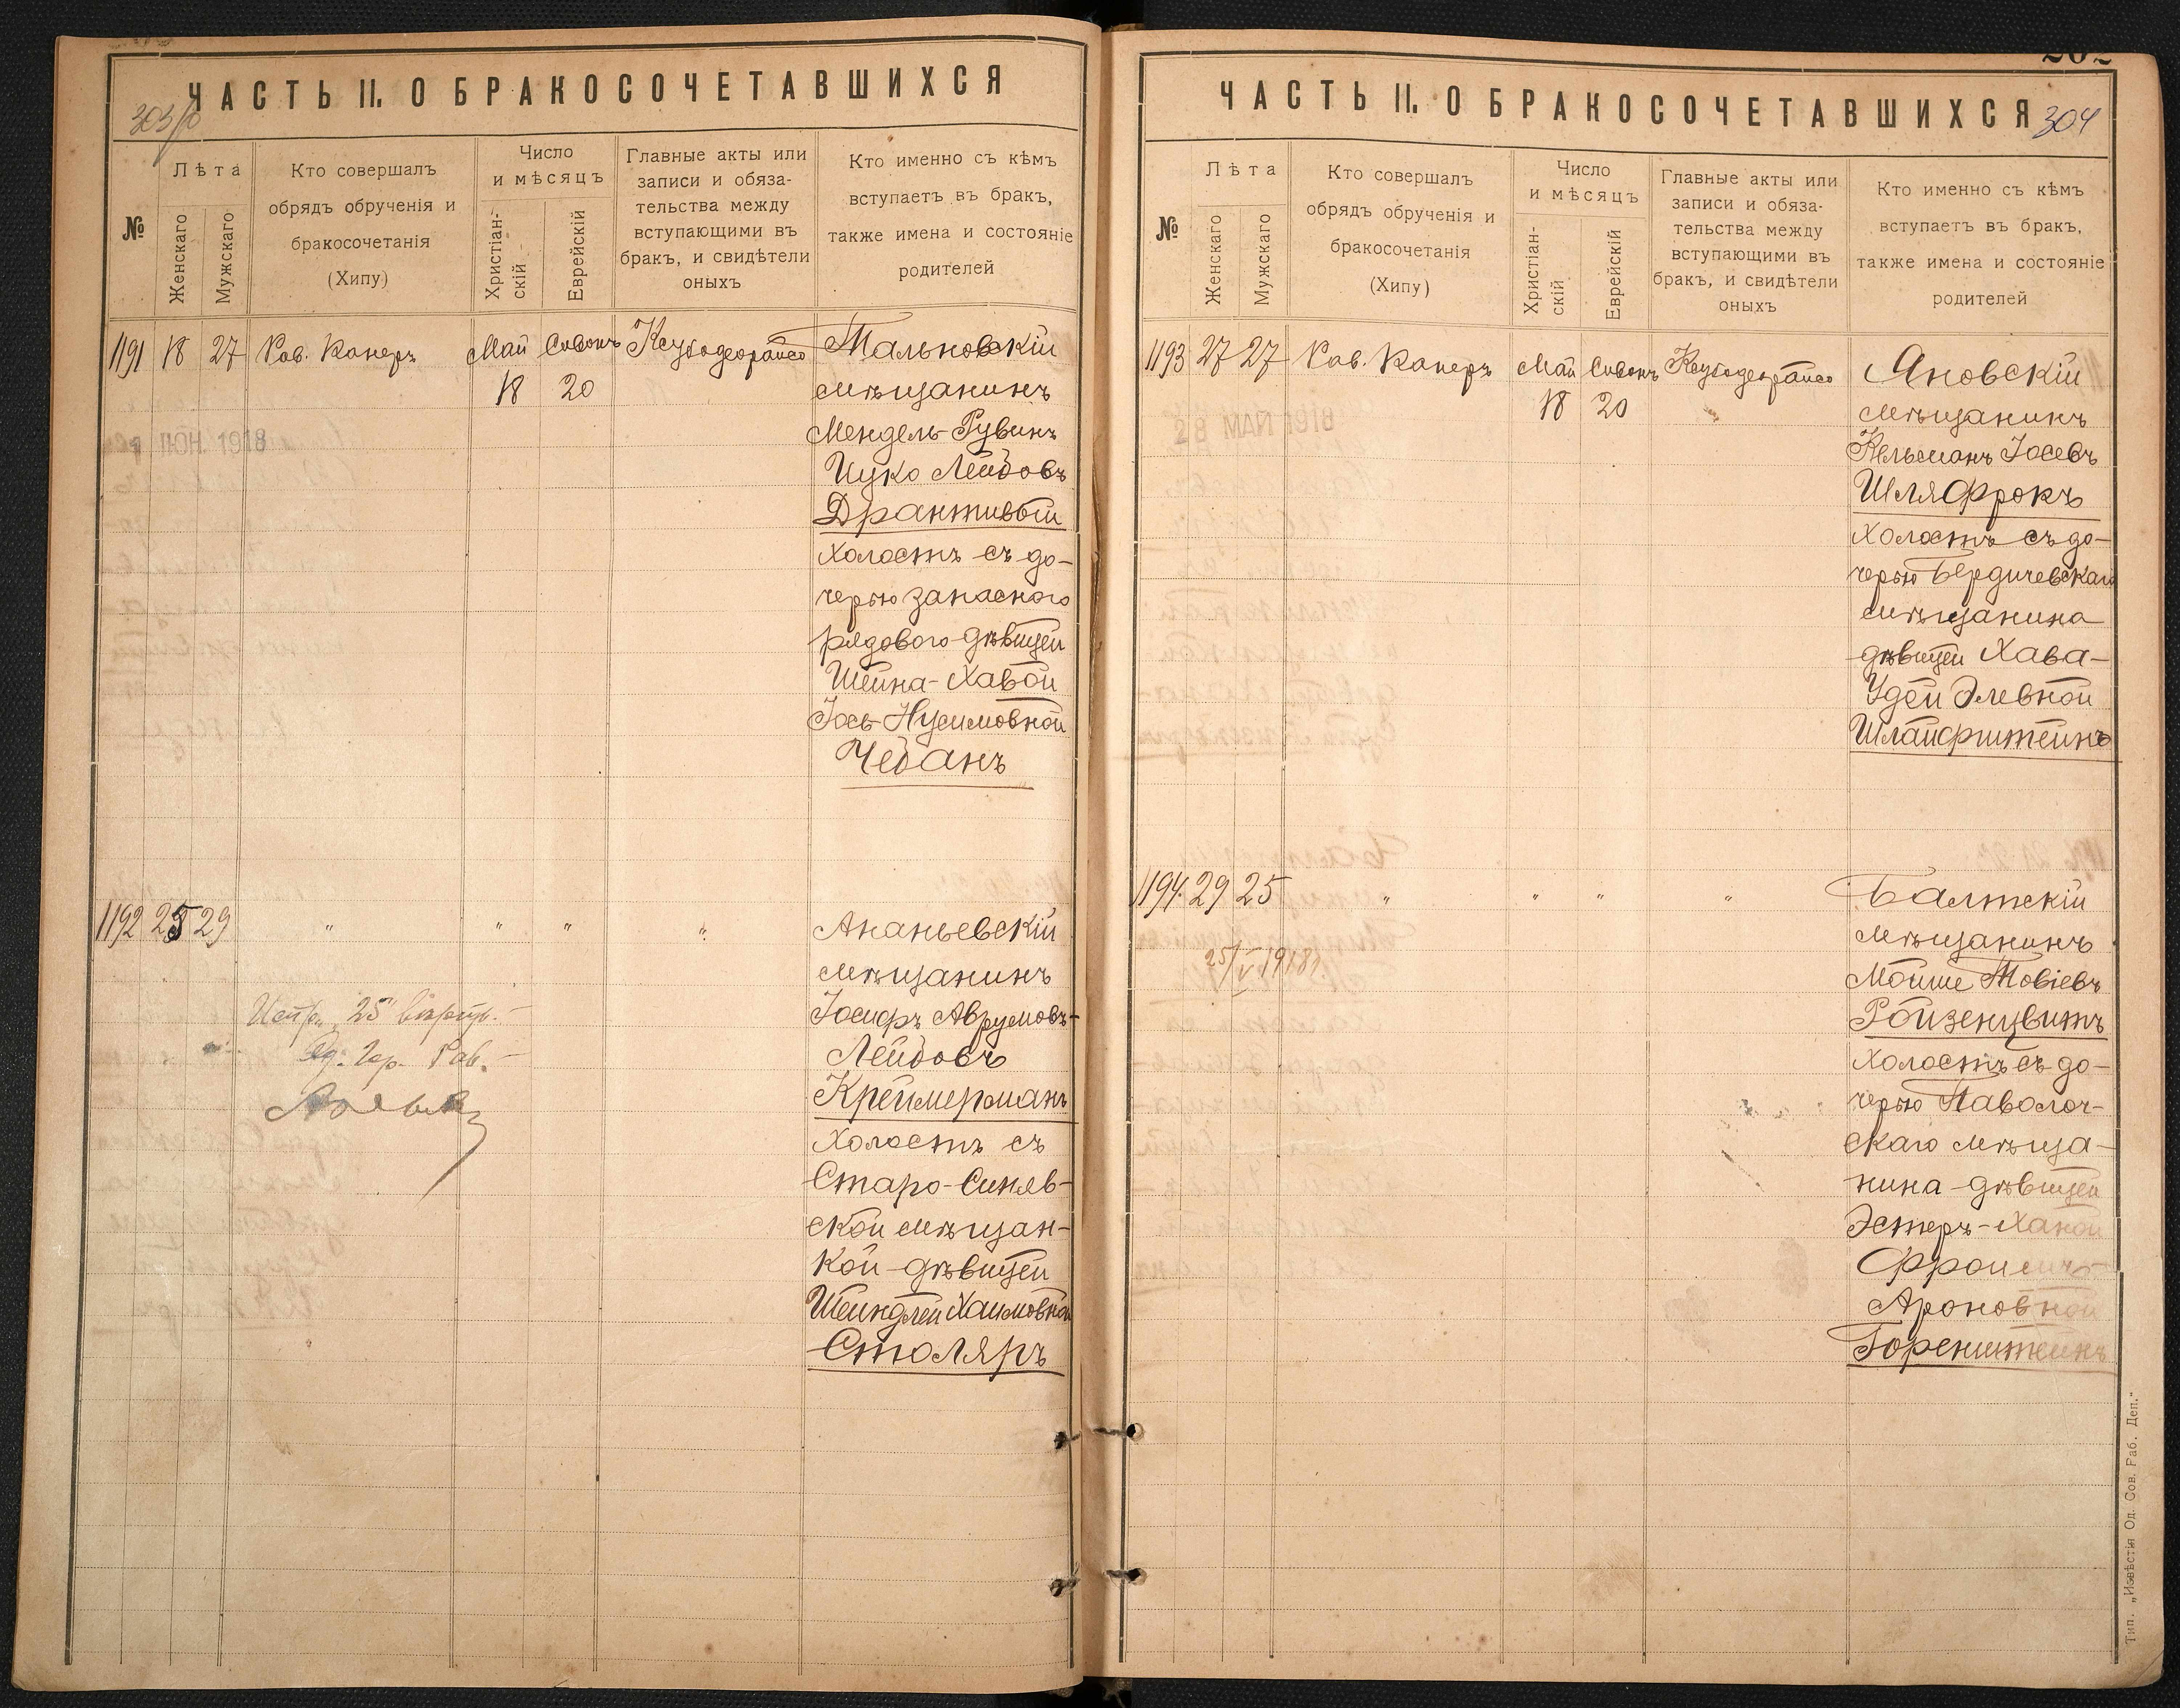 ЧАСТЬ II. О БРАКОСОЧЕТАВШИХСЯ
№
Лѣта
Женскаго
Мужскаго
Кто совершалъ
обрядъ обрученія и
бракосочетанія
(Хипу)
Число
и мѣсяцъ
Христіан-
скій
Еврейскій
Главные акты или
записи и обяза-
тельства между
вступающими въ
бракъ, и свидѣтели
оныхъ
Кто именно съ кѣмъ
вступаетъ въ бракъ,
также имена и состояніе
родителей
1191 18 27 Рав. Канеръ Май Сивонъ Тальновскій
18 20 мѣщанинъ
Мендель-Рувинъ
Ицко Лейбовъ
Дрантивый
холостъ съ до-
черью запасного
рядового дѣвицей
Шейна-Хавой
Іось-Нусимовной
Чебанъ
ІЮН. 1918
1192 25 29 " " " " Ананьевскій
мѣщанинъ
Іосифъ Аврумовъ-
Лейбовъ
Креймерманъ
холостъ съ
Старо-Синяв-
ской мѣщан-
кой дѣвицей
Шейндлей Хаимовной
Столяръ
Испр. "25"
Рав.
ЧАСТЬ II. О БРАКОСОЧЕТАВШИХСЯ
304
№
Лѣта
Женскаго
Мужскаго
Кто совершалъ
обрядъ обрученія и
бракосочетанія
(Хипу)
Число
и мѣсяцъ
Христіан-
скій
Еврейскій
Главные акты или
записи и обяза-
тельства между
вступающими въ
бракъ, и свидѣтели
оныхъ
Кто именно съ кѣмъ
вступаетъ въ бракъ,
также имена и состояніе
родителей
1193 27 27 Рав. Канеръ Май Сивонъ Яновскій
18 20 мѣщанинъ
Кельманъ Іосевъ
Шляфрокъ
холостъ съ до-
черью Бердичевскаго
мѣщанина
дѣвицей Хава-
Удей Элевной
Шлайфштейнъ
28 МАЙ 1918
1194. 29 25 " " " " Балтскій
мѣщанинъ
Мойше Товіевъ
Ройзенцвитъ
холостъ съ до-
черью Паволоч-
скаго мѣща-
нина дѣвицей
Эстеръ-Ханой
Ароновной
Горенштейнъ
25/V 1918 г.
Тип. „Извѣстія Од. Сов. Раб. Деп."